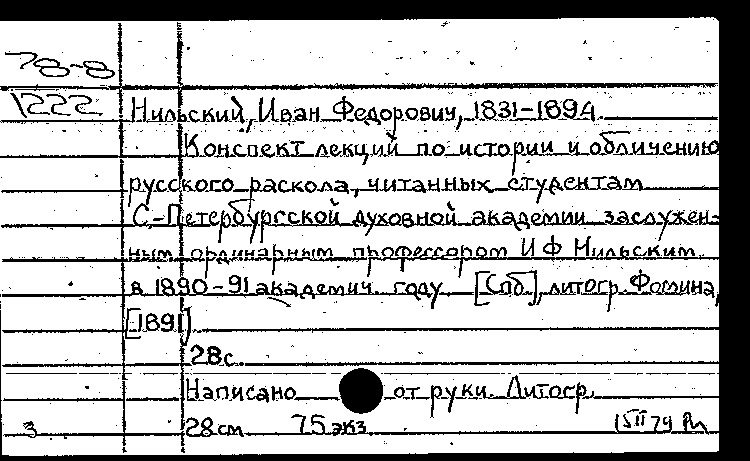 78-8
1222
Нильский, Иван Федорович, 1831-1894.
Конспект лекций по истории и обличению
русского раскола, читанных студентам
С.-Петербургсской духовной академии заслужен-
ным ординарным профессором И Ф Нильским
в 1890-91 академич. году. [Спб.], литогр. Фомина,
[1891].
28с.
Написано от руки. Литогр.
3 28см. 75 экз. 15 II 79